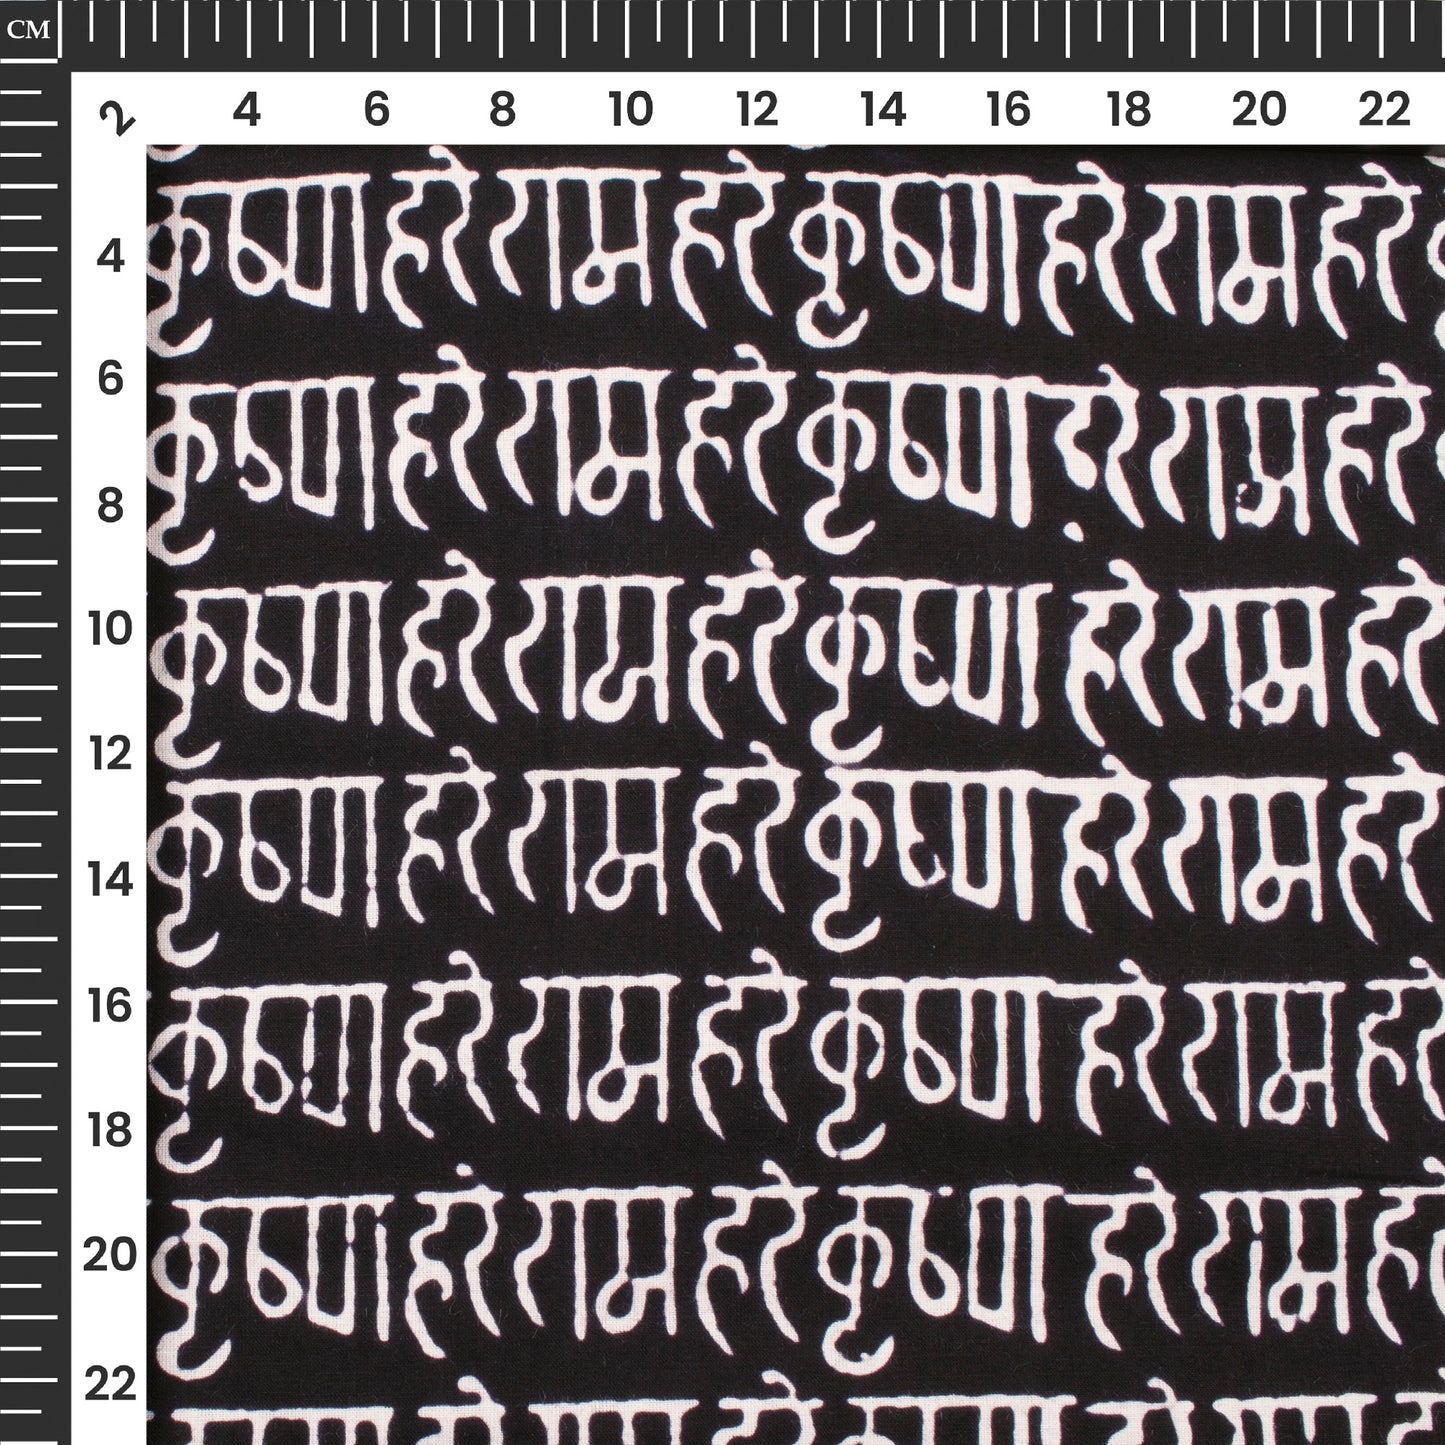 CM
2 4 6 8 10 12 14 16 18 20 22
कृष्ण हरे राम हरे कृष्ण हरे राम हरे
4
कृष्ण हरे राम हरे कृष्ण हरे राम हरे
6
8
कृष्ण हरे राम हरे कृष्ण हरे राम हरे
10
12
कृष्ण हरे राम हरे कृष्ण हरे राम हरे
14
कृष्ण हरे राम हरे कृष्ण हरे राम हरे
16
18
कृष्ण हरे राम हरे कृष्ण हरे राम हरे
20
22